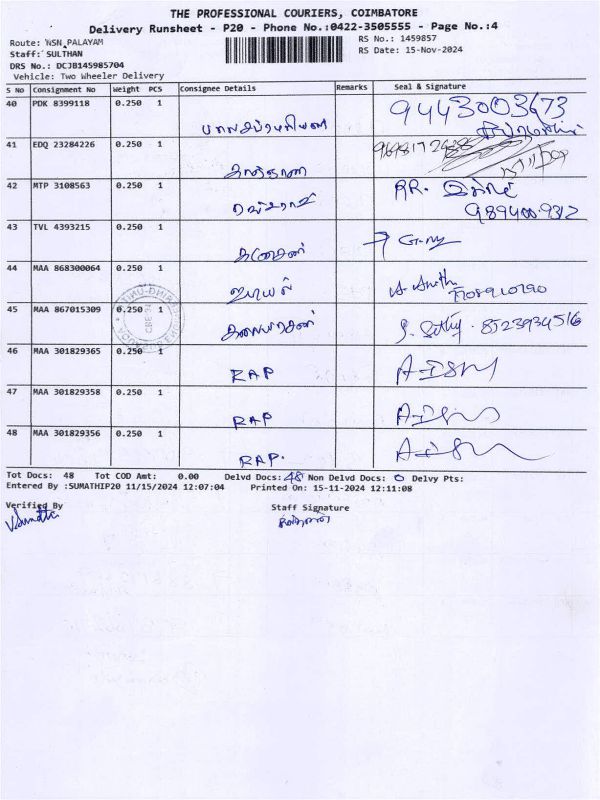 THE PROFESSIONAL COURIERS, COIMBATORE
Delivery Runsheet - P20 - Phone No.:0422-3505555 - Page No.:4
Route: NSN PALAYAM
RS No.: 1459857
Staff: SULTHAN
RS Date: 15-Nov-2024
DRS No.: DCJB145985704
Vehicle: Two Wheeler Delivery
S No Consignment No Weight PCS Consignee Details Remarks Seal & Signature
40 PDK 8399118 0.250 1 9443003673
பாலசுப்ரமணியன்
41 EDQ 23284226 0.250 1
42 MTP 3108563 0.250 1 RR.
989400 9312
43 TVL 4393215 0.250 1
கணேசன்
44 MAA 868300064 0.250 1
45 MAA 867015309 0.250 1 8523934516
கலையரசன்
46 MAA 301829365 0.250 1
RAP
47 MAA 301829358 0.250 1
RAP
48 MAA 301829356 0.250 1
RAP.
Tot Docs: 48 Tot COD Amt: 0.00 Delvd Docs: 48 Non Delvd Docs: 0 Delvy Pts:
Entered By :SUMATHIP20 11/15/2024 12:07:04 Printed On: 15-11-2024 12:11:08
Verified By Staff Signature